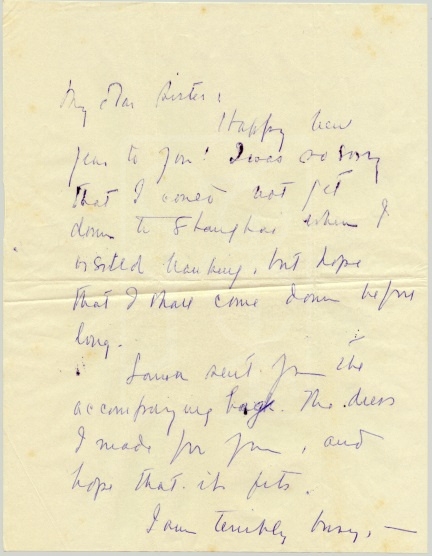 My dear Sister:
Happy New
Year to you! I was so sorry
that I could not get
down to Shanghai when I
visited Nanking, but hope
that I shall come down before
long.
sent you the
accompanying bags. The dress
I made for you, and
hope that it fits.
I am terribly busy, —